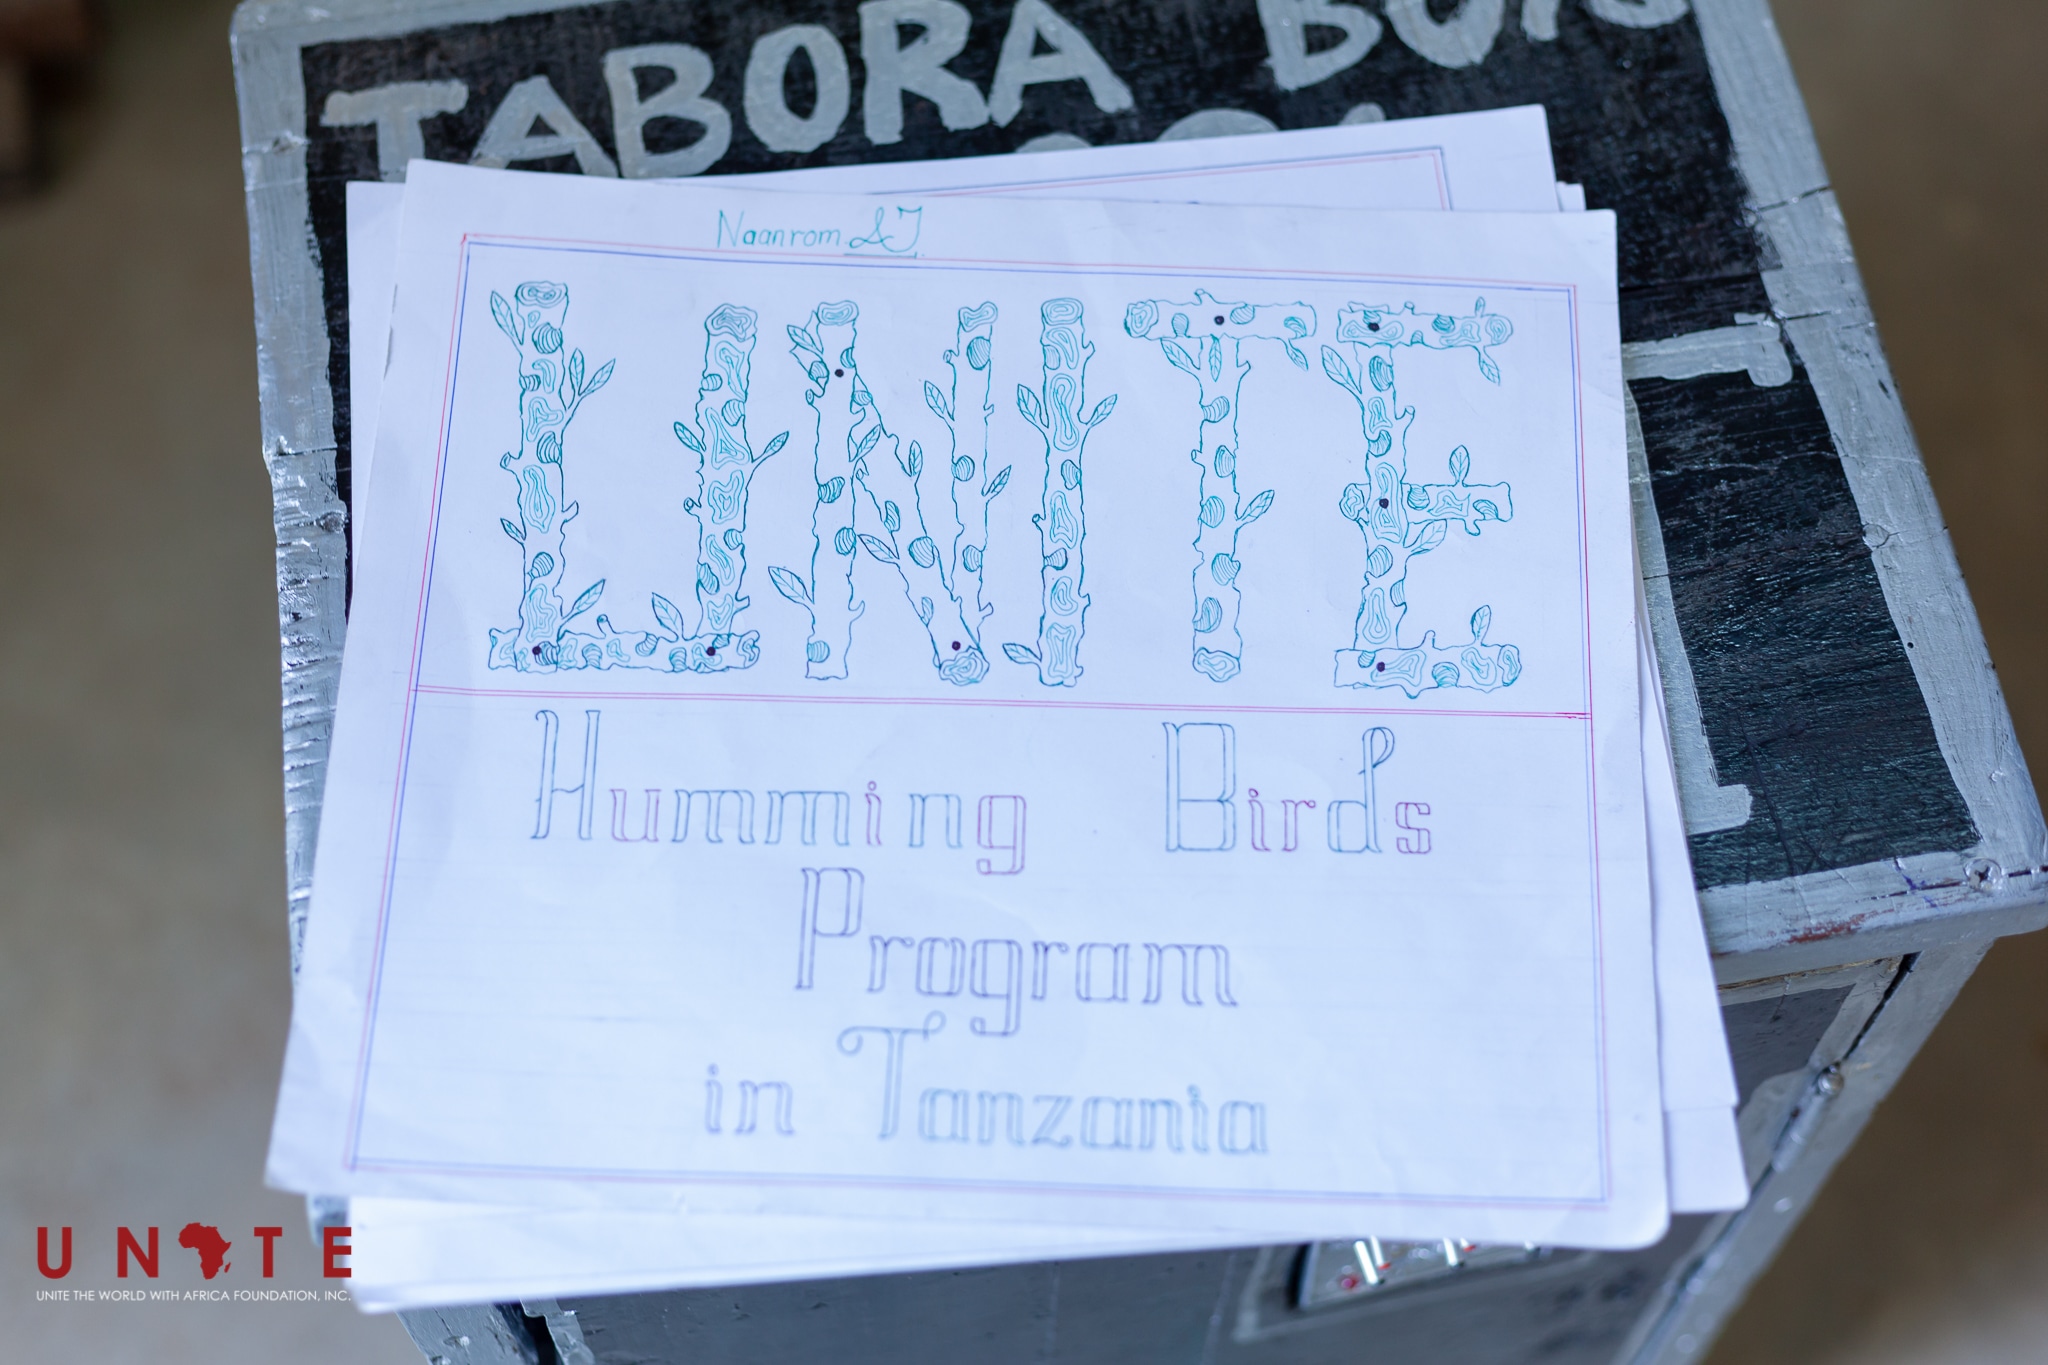 TABORA BOYS
Naanrom SJ
UNITE
Humming Birds
Program
in Tanzania
UNITE
UNITE THE WORLD WITH AFRICA FOUNDATION, INC.